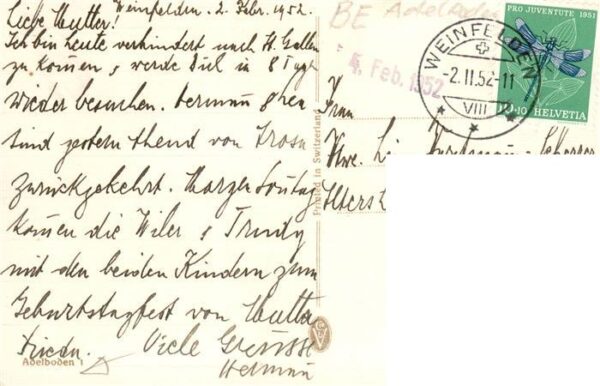 Weinfelden. 2. Febr. 1952.
Liebe Mutter!
Ich bin heute verhindert nach St. Gallen
zu kommen, & werde Dich in 8 Tage
wieder besuchen. Hermann &
sind gestern Abend von Arosa
zurückgekehrt. Morgen Sontag
komen die Wiler & Trudy
mit den beiden Kindern zum
Geburtstagfest von Mutter
Frieda. Viele Grüsse
Herman
Adelboden 1
Printed in Switzerland
BE Adelboden
4. Feb. 1952
WEINFELDEN
-2.II.52-11
VIII
PRO JUVENTUTE 1951
10+10 HELVETIA
Frau
Wwe.